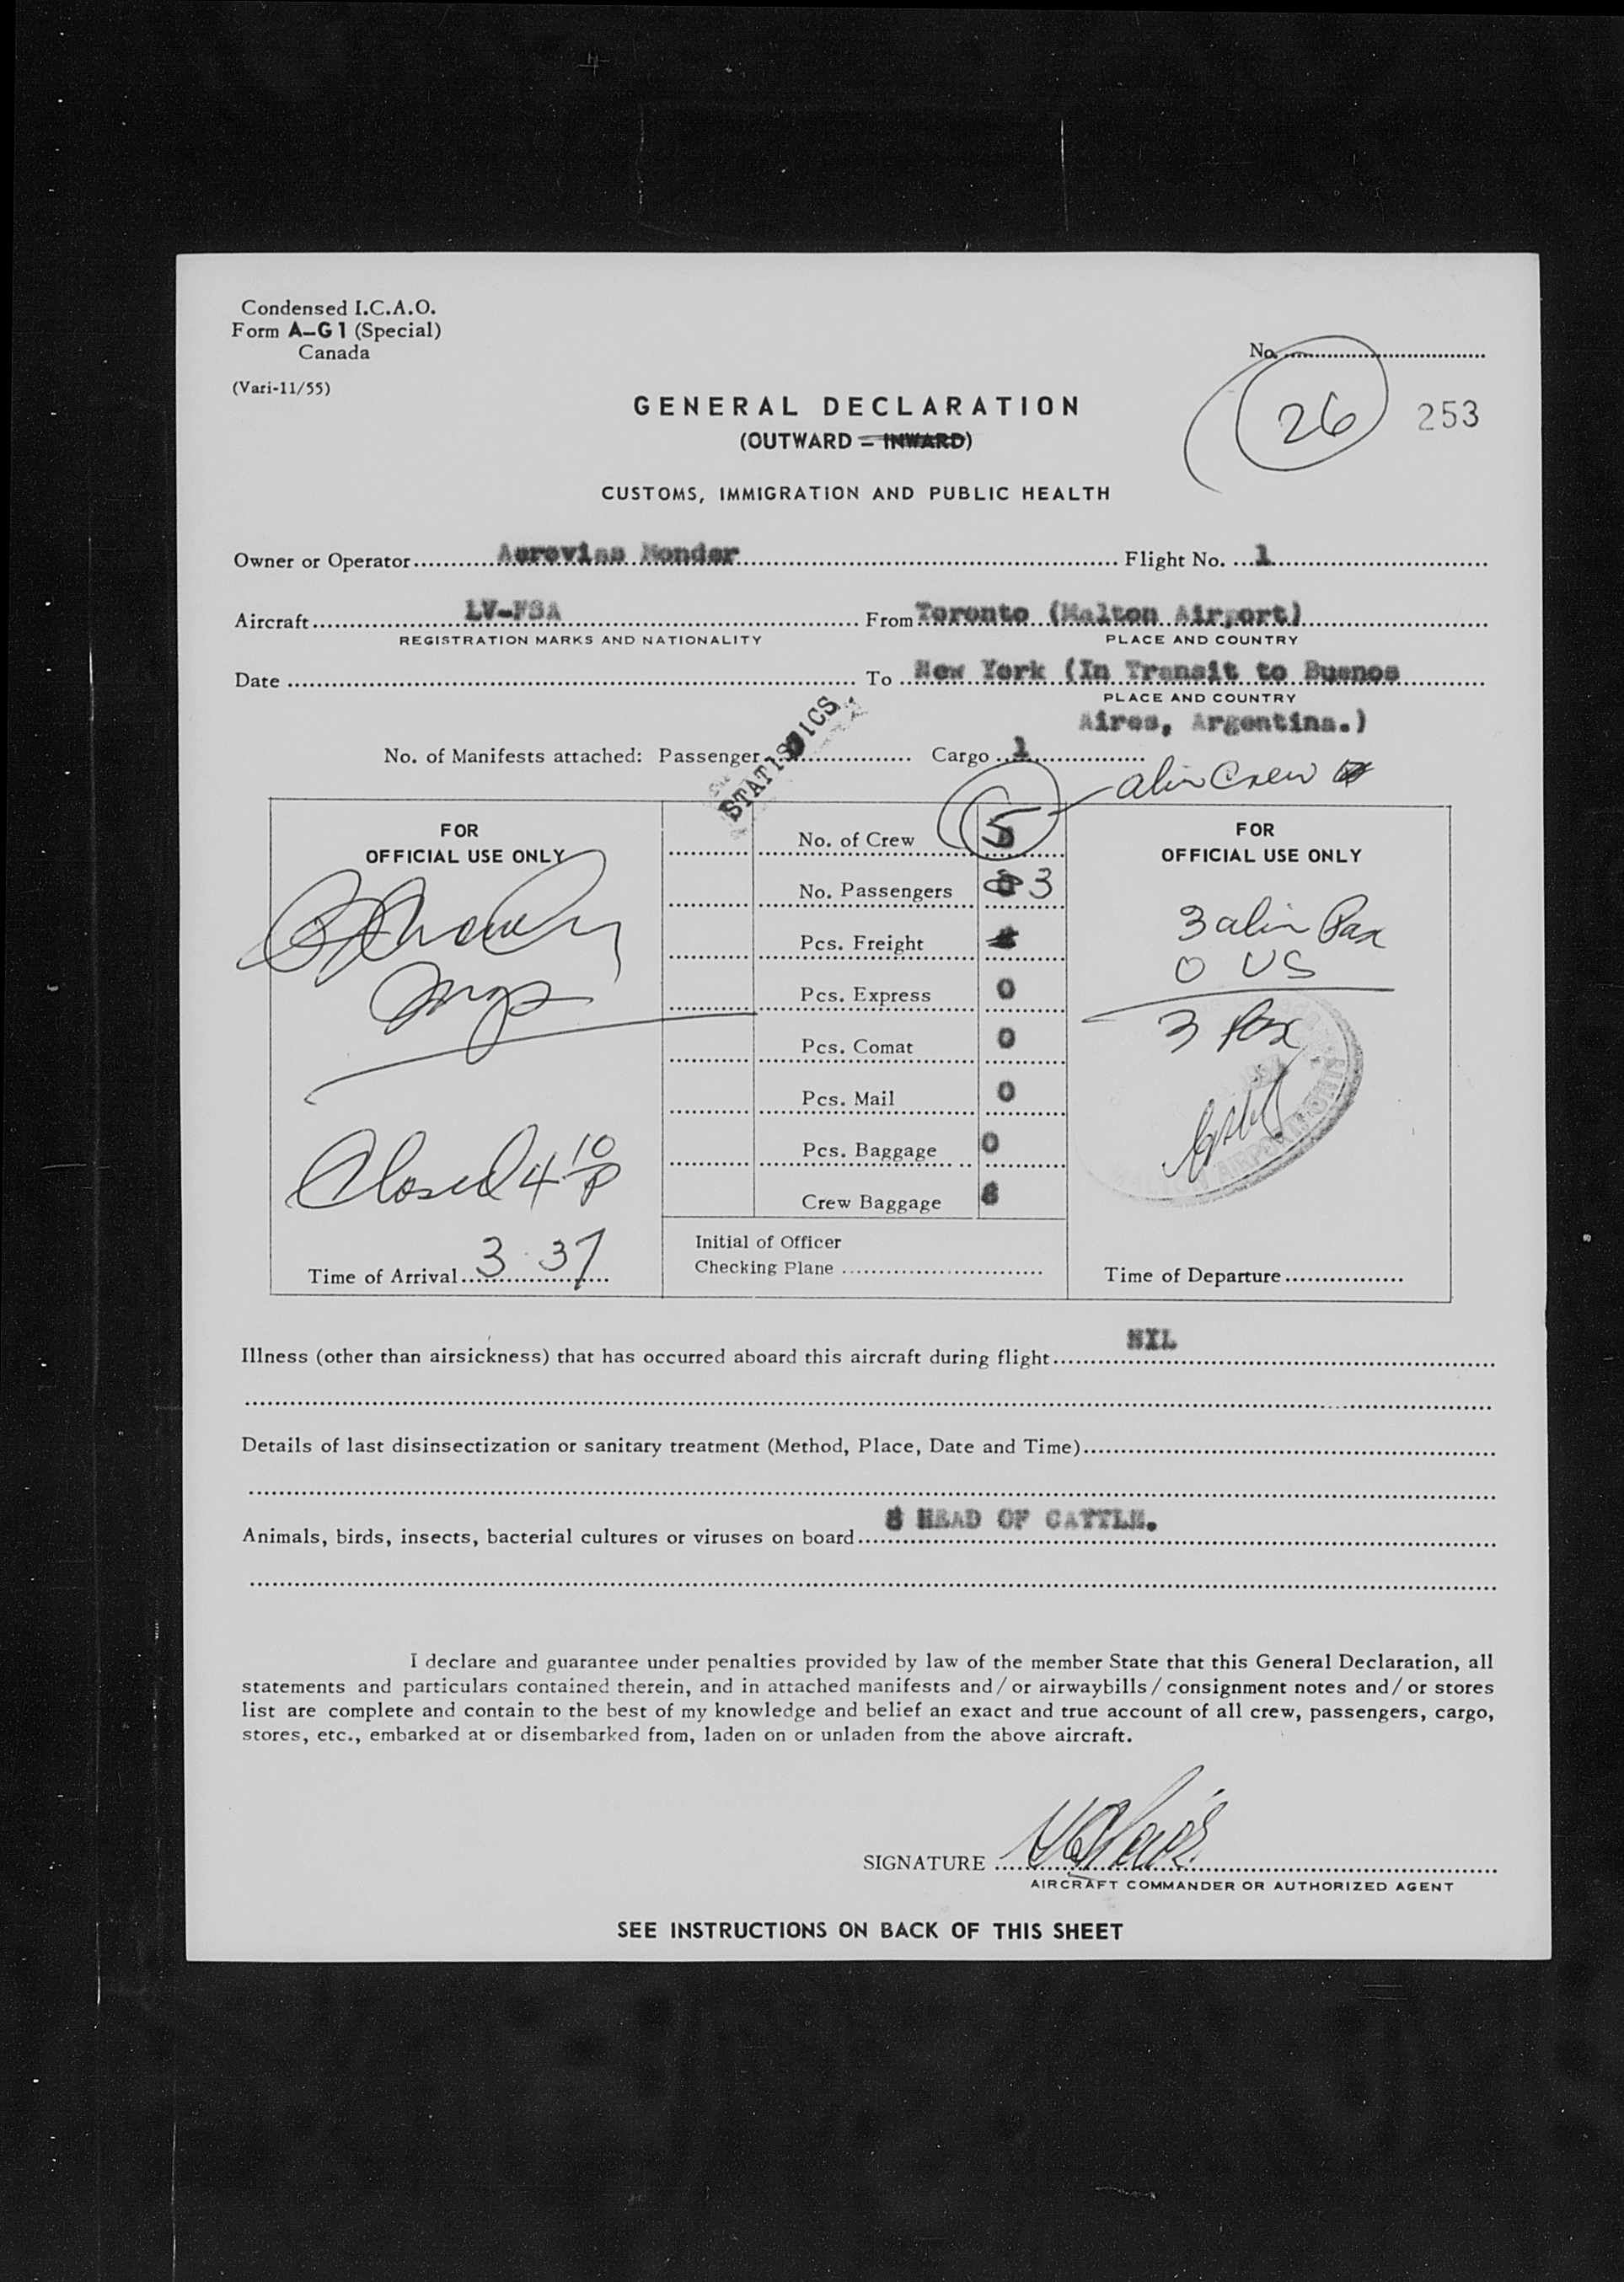 Condensed I.C.A.O.
Form A-G1 (Special)
Canada
(Vari-11/55)
No.
26
253
GENERAL DECLARATION
(OUTWARD - INWARD)
CUSTOMS, IMMIGRATION AND PUBLIC HEALTH
Owner or Operator Aerovias Flight No. 1
Aircraft From Toronto (Malton Airport)
REGISTRATION MARKS AND NATIONALITY PLACE AND COUNTRY
Date To New York (In Transit to Buenos
PLACE AND COUNTRY
Aires, Argentina.)
STATISTICS
No. of Manifests attached: Passenger Cargo 1
alin Crew
FOR
OFFICIAL USE ONLY
Closed 4 10 P
Time of Arrival 3 37
No. of Crew 5
No. Passengers 3
Pcs. Freight
Pcs. Express 0
Pcs. Comat 0
Pcs. Mail 0
Pcs. Baggage 0
Crew Baggage
Initial of Officer
Checking Plane
FOR
OFFICIAL USE ONLY
3 alin Pax
0 US
3 Pax
Time of Departure
Illness (other than airsickness) that has occurred aboard this aircraft during flight NIL
Details of last disinsectization or sanitary treatment (Method, Place, Date and Time)
Animals, birds, insects, bacterial cultures or viruses on board 8 HEAD OF CATTLE.
I declare and guarantee under penalties provided by law of the member State that this General Declaration, all
statements and particulars contained therein, and in attached manifests and/or airwaybills/consignment notes and/or stores
list are complete and contain to the best of my knowledge and belief an exact and true account of all crew, passengers, cargo,
stores, etc., embarked at or disembarked from, laden on or unladen from the above aircraft.
SIGNATURE
AIRCRAFT COMMANDER OR AUTHORIZED AGENT
SEE INSTRUCTIONS ON BACK OF THIS SHEET